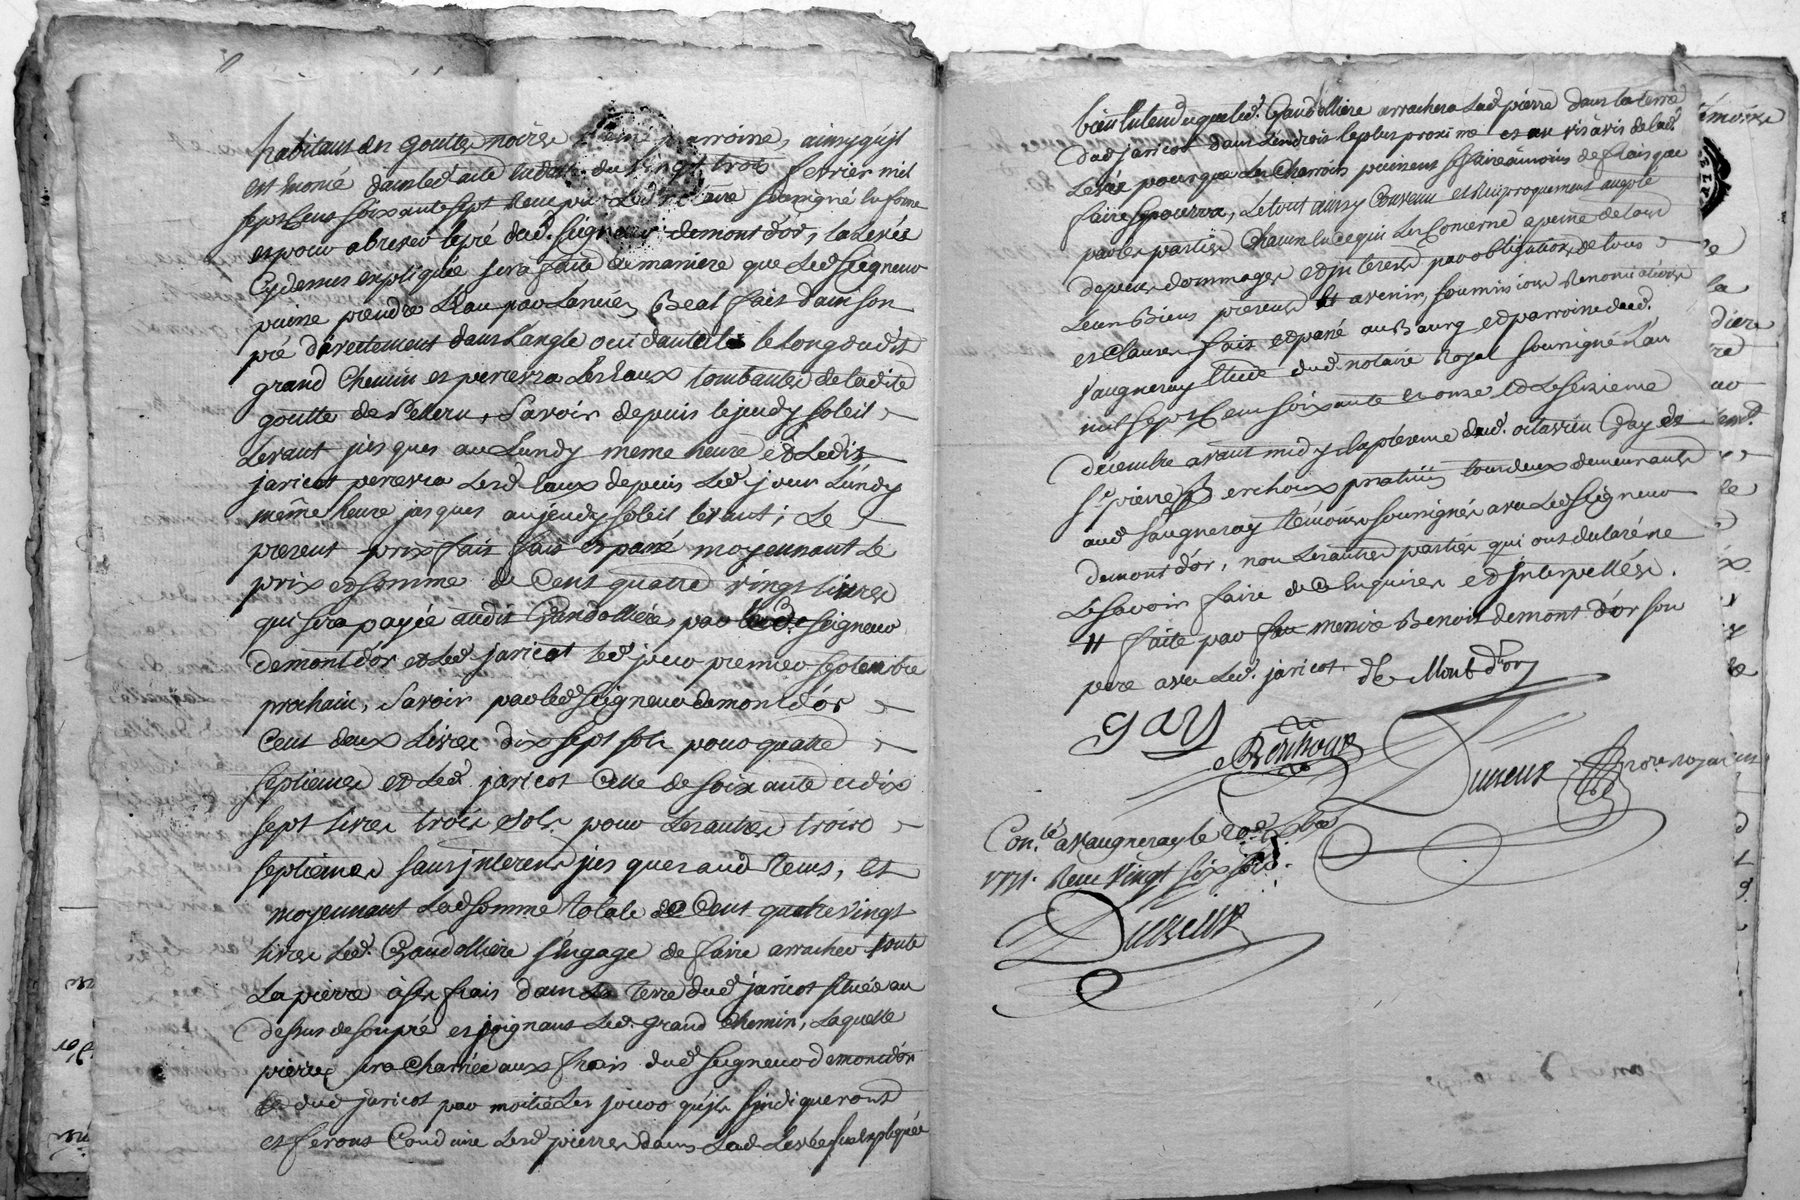 habitant en goutte noire parroine, ainsy qu'jl
est enoncé dans led. acte du vingt trois fevrier mil
sept cent soixante sept recu par led. notaire soussigné
et pour abrever le pré dud. seigneur demont d'or, la levée
cy dessus expliquée sera faite de maniere que led seigneur
puisse prendre l'eau par l'ancien Beal fait dans son
pré directement dans l'angle occidantel le long dudit
grand chemin et percevra les eaux tombantes de ladite
goutte de Pelleru, savoir depuis le jeudy soleil
levant jusques au Lundy meme heure et ledit
jaricot percevra lesd. eaux depuis led. jour Lundy
même heure jusques au jeudy soleil levant; Le
present prixfait fait et passé moyennant le
prix et somme de cent quatre vingt livres
qui sera payée audit Gandolliere par led. seigneur
demont d'or et led. jaricot led. jour premier septembre
prochain, savoir par led seigneur demont d'or
cent deux Livres dix sept sols pour quatre
septiemes et led. jaricot celle de soixante et dix
sept livres trois sols pour les autres trois
septiemes sans jnterets jusques aud tems, et
moyennant lad somme totale de cent quatre vingt
livres led. Gandolliere s'engage de faire arracher toute
la pierre à ses frais dans la terre dud jaricot située au
dessus de son pré et joignant led. grand chemin, laquelle
pierre sera charriée aux frais dud seigneur demont d'or
et dud jaricot par moitié les jours qu'jls jndiqueront
et feront conduire lesd pierres dans lad. levée sus expliquée
bien entendu que led. Gandolliere arrachera lad pierre dans la terre
dud jaricot dans l'endroit le plus proxime et au vis à vis de lad.
levée pour que les charrois puissent se faire à moins de frais que
faire se pourra, le tout ainsy convenu et reciproquement accepté
par les parties chacun en ce qui les concerne a peine de tous
depens dommages et jnterets par obligation de tous
leurs Biens presents et avenir, soumissions renonciations
et clauses, fait et passé au Bourg et parroine dud.
vaugneray Etude dud. notaire Royal soussigné l'an
mil sept cent soixante et onze et le seizieme
decembre avant midy en presence de sr. octavien Gay et
sr. pierre Berchoux praticien tous deux demeurants
aud vaugneray témoins soussignés avec led seigneur
demont d'or, non les autres parties qui ont declaré ne
le savoir faire de ce enquises et jnterpellées.
faite par feu messire Benoit demont d'or son
pere avec led. jaricot
de Montd'or
gay
Berchoux
Duneur
nore. royal
Con.lé a vaugneray le
1771. Recu vingt six sols.